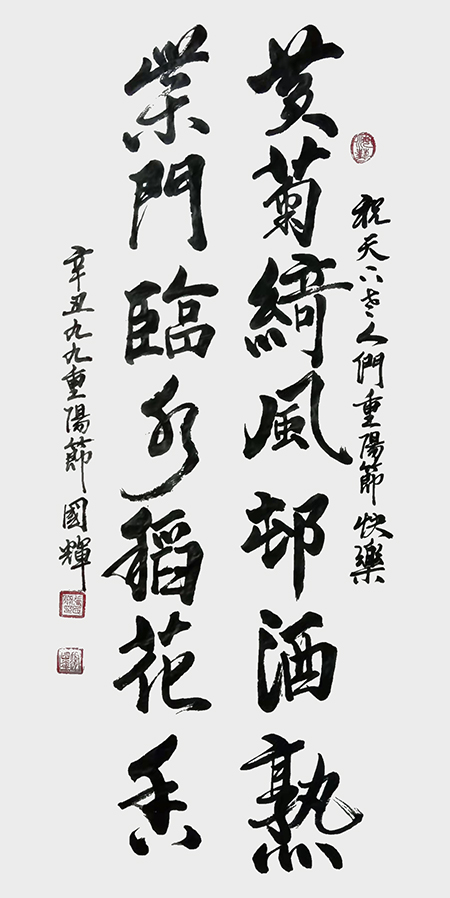 祝天下老人們重陽節快樂
黄菊綺風邨酒熟
柴門臨水稻花香
辛丑九九重陽節 國輝